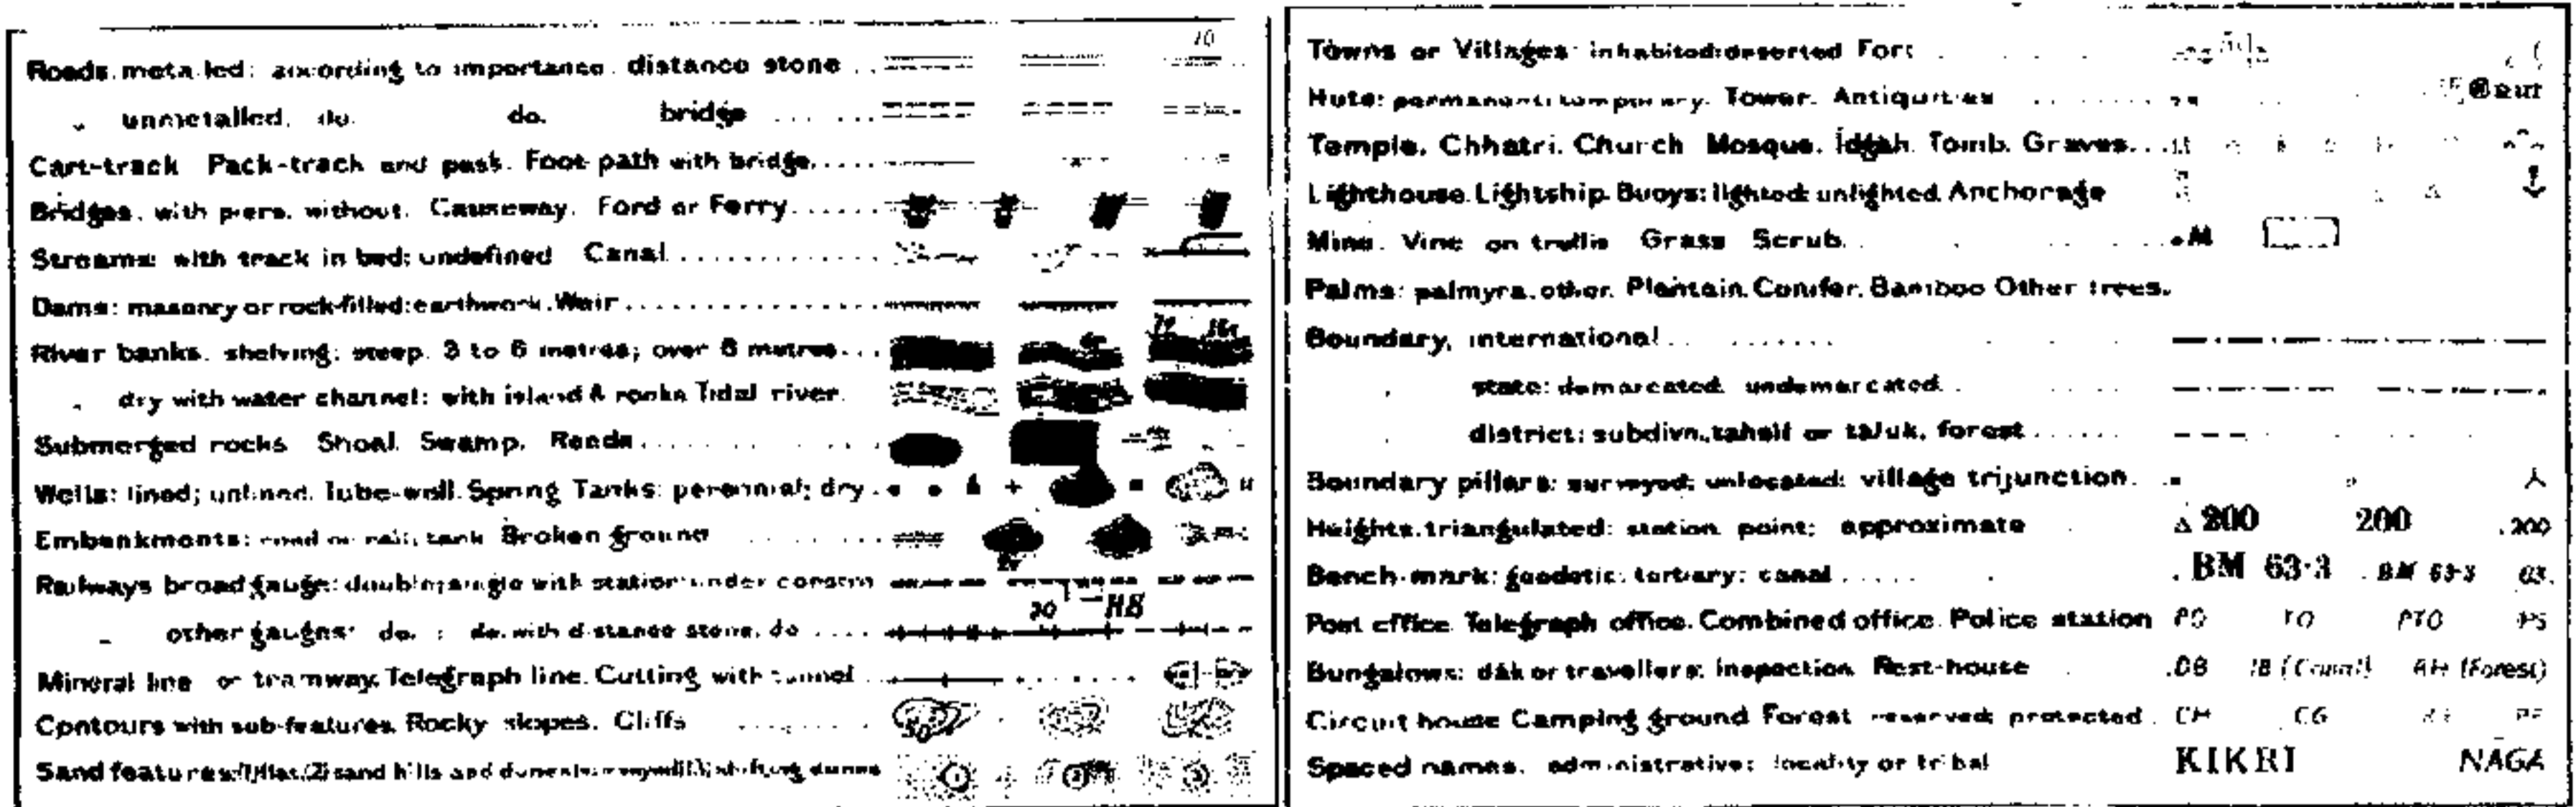 10
Roads, metalled: according to importance. distance stone
" unmetalled, do. do. bridge
Cart-track Pack-track and pass. Foot-path with bridge
Bridges, with piers, without. Causeway. Ford or Ferry
Streams: with track in bed; undefined Canal
Dams: masonry or rock-filled; earthwork. Weir
River banks, shelving; steep, 3 to 6 metres; over 6 metres
" dry with water channel; with island & rocks Tidal river
Submerged rocks Shoal. Swamp. Reeds
Wells: lined; unlined. Tube-well. Spring Tanks: perennial; dry
Embankments: road or rail, tank Broken ground
Railways broad gauge: double; single with station under constrn
20 RS
" other gauges: do. ; do. with distance stone, do
Mineral line or tramway. Telegraph line. Cutting with tunnel
Contours with sub-features. Rocky slopes. Cliffs
50
Sand features: (1) flat, (2) sand hills and dunes (3) shifting dunes
1 2 3
Towns or Villages: inhabited: deserted Fort
Huts: permanent; temporary. Tower. Antiquities
Temple. Chhatri. Church Mosque. Īdgāh. Tomb. Graves
Lighthouse. Lightship. Buoys: lighted: unlighted. Anchorage
Mine. Vine on trellis Grass Scrub .M
Palms: palmyra, other. Plantain. Conifer. Bamboo Other trees.
Boundary, international
" state: demarcated. undemarcated
" district: subdivn., tahsil or tāluk, forest
Boundary pillars: surveyed; unlocated: village trijunction
Heights, triangulated: station. point; approximate 200 200 .200
Bench-mark: geodetic: tertiary: canal .BM 63·3 .BM 63·3 63.
Post office. Telegraph office. Combined office. Police station PO TO PTO PS
Bungalows: dāk or travellers; inspection Rest-house .DB IB (Canal) RH (Forest)
Circuit house Camping ground Forest reserved; protected CH CG RF PF
Spaced names, administrative; locality or tribal KIKRI NAGA